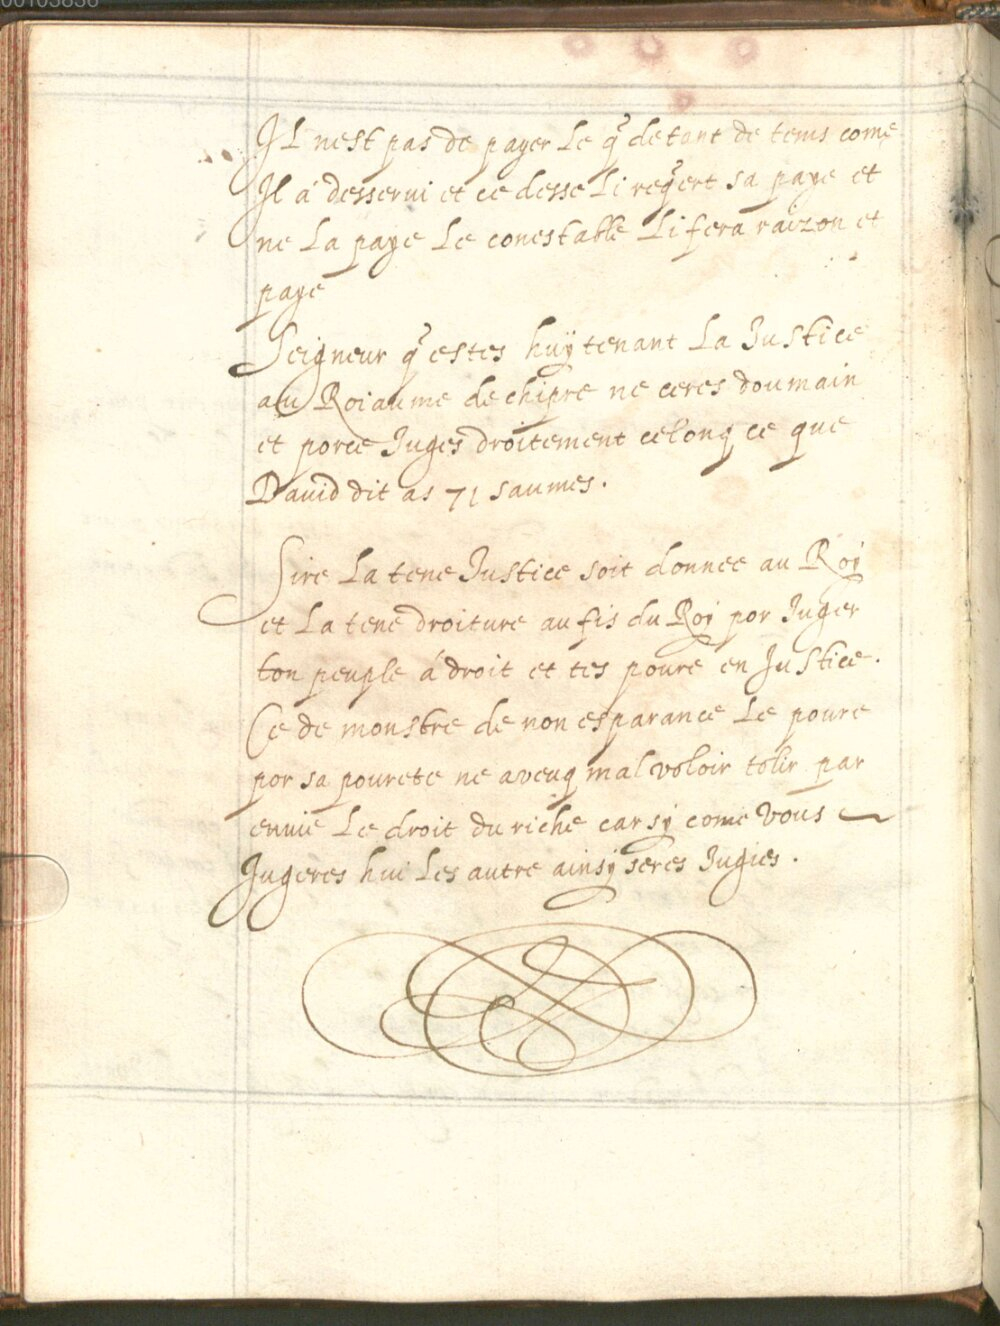 00103836
Il nest pas de payer Le q̃ de tant de tems come
Il á desservi et ce desse Li req̃ert sa paye et
ne La paye Le conestable Li fera raizon et
paye
Seigneur q̃ estes huÿ tenant La Justice
au Roiaume de chipre ne ceres doumain
et porce Juges droitement celonq ce que
David dit as 71 saumes.
Sire La tene Justice soit donnee au Roy
et La tene droiture au fis du Roy por Juger
ton peuple á droit et tes poure en Justice.
Ce de monstre de non esparance Le poure
por sa pourete ne aveuq mal voloir tolir par
envie Le droit du riche car sy come vous
Jugeres hui Les autre ainsy seres Jugies.